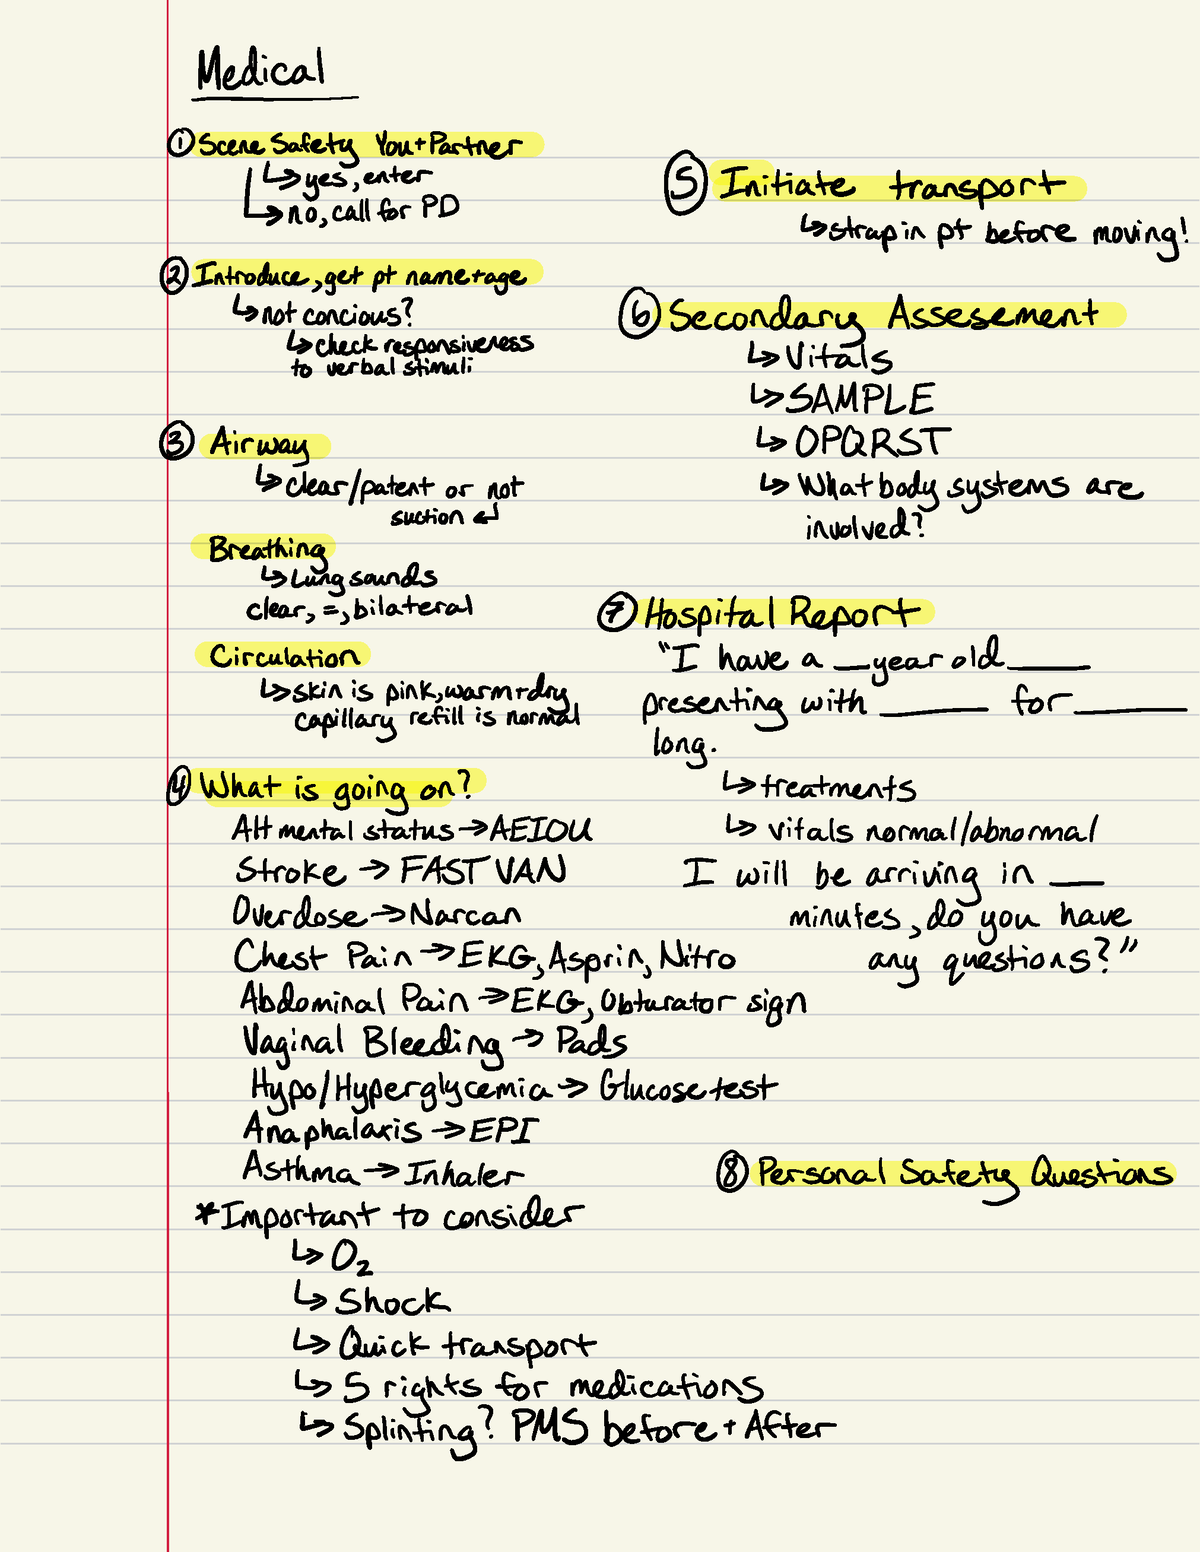 Medical
① Scene Safety You + Partner
↳ yes, enter
↳ no, call for PD
② Introduce, get pt name + age
↳ not concious?
↳ check responsiveness
to verbal stimuli
③ Airway
↳ clear/patent or not
suction ↵
Breathing
↳ Lung sounds
clear, =, bilateral
Circulation
↳ skin is pink, warm + dry
capillary refill is normal
④ What is going on?
Alt mental status → AEIOU
Stroke → FAST VAN
Overdose → Narcan
Chest Pain → EKG, Asprin, Nitro
Abdominal Pain → EKG, Obturator sign
Vaginal Bleeding → Pads
Hypo/Hyperglycemia → Glucose test
Anaphalaxis → EPI
Asthma → Inhaler
*Important to consider
↳ O₂
↳ Shock
↳ Quick transport
↳ 5 rights for medications
↳ Splinting? PMS before + After
⑤ Initiate transport
↳ strap in pt before moving!
⑥ Secondary Assesement
↳ Vitals
↳ SAMPLE
↳ OPQRST
↳ What body systems are
involved?
⑦ Hospital Report
"I have a __ year old ____
presenting with _____ for _____
long.
↳ treatments
↳ vitals normal/abnormal
I will be arriving in __
minutes, do you have
any questions?"
⑧ Personal Safety Questions